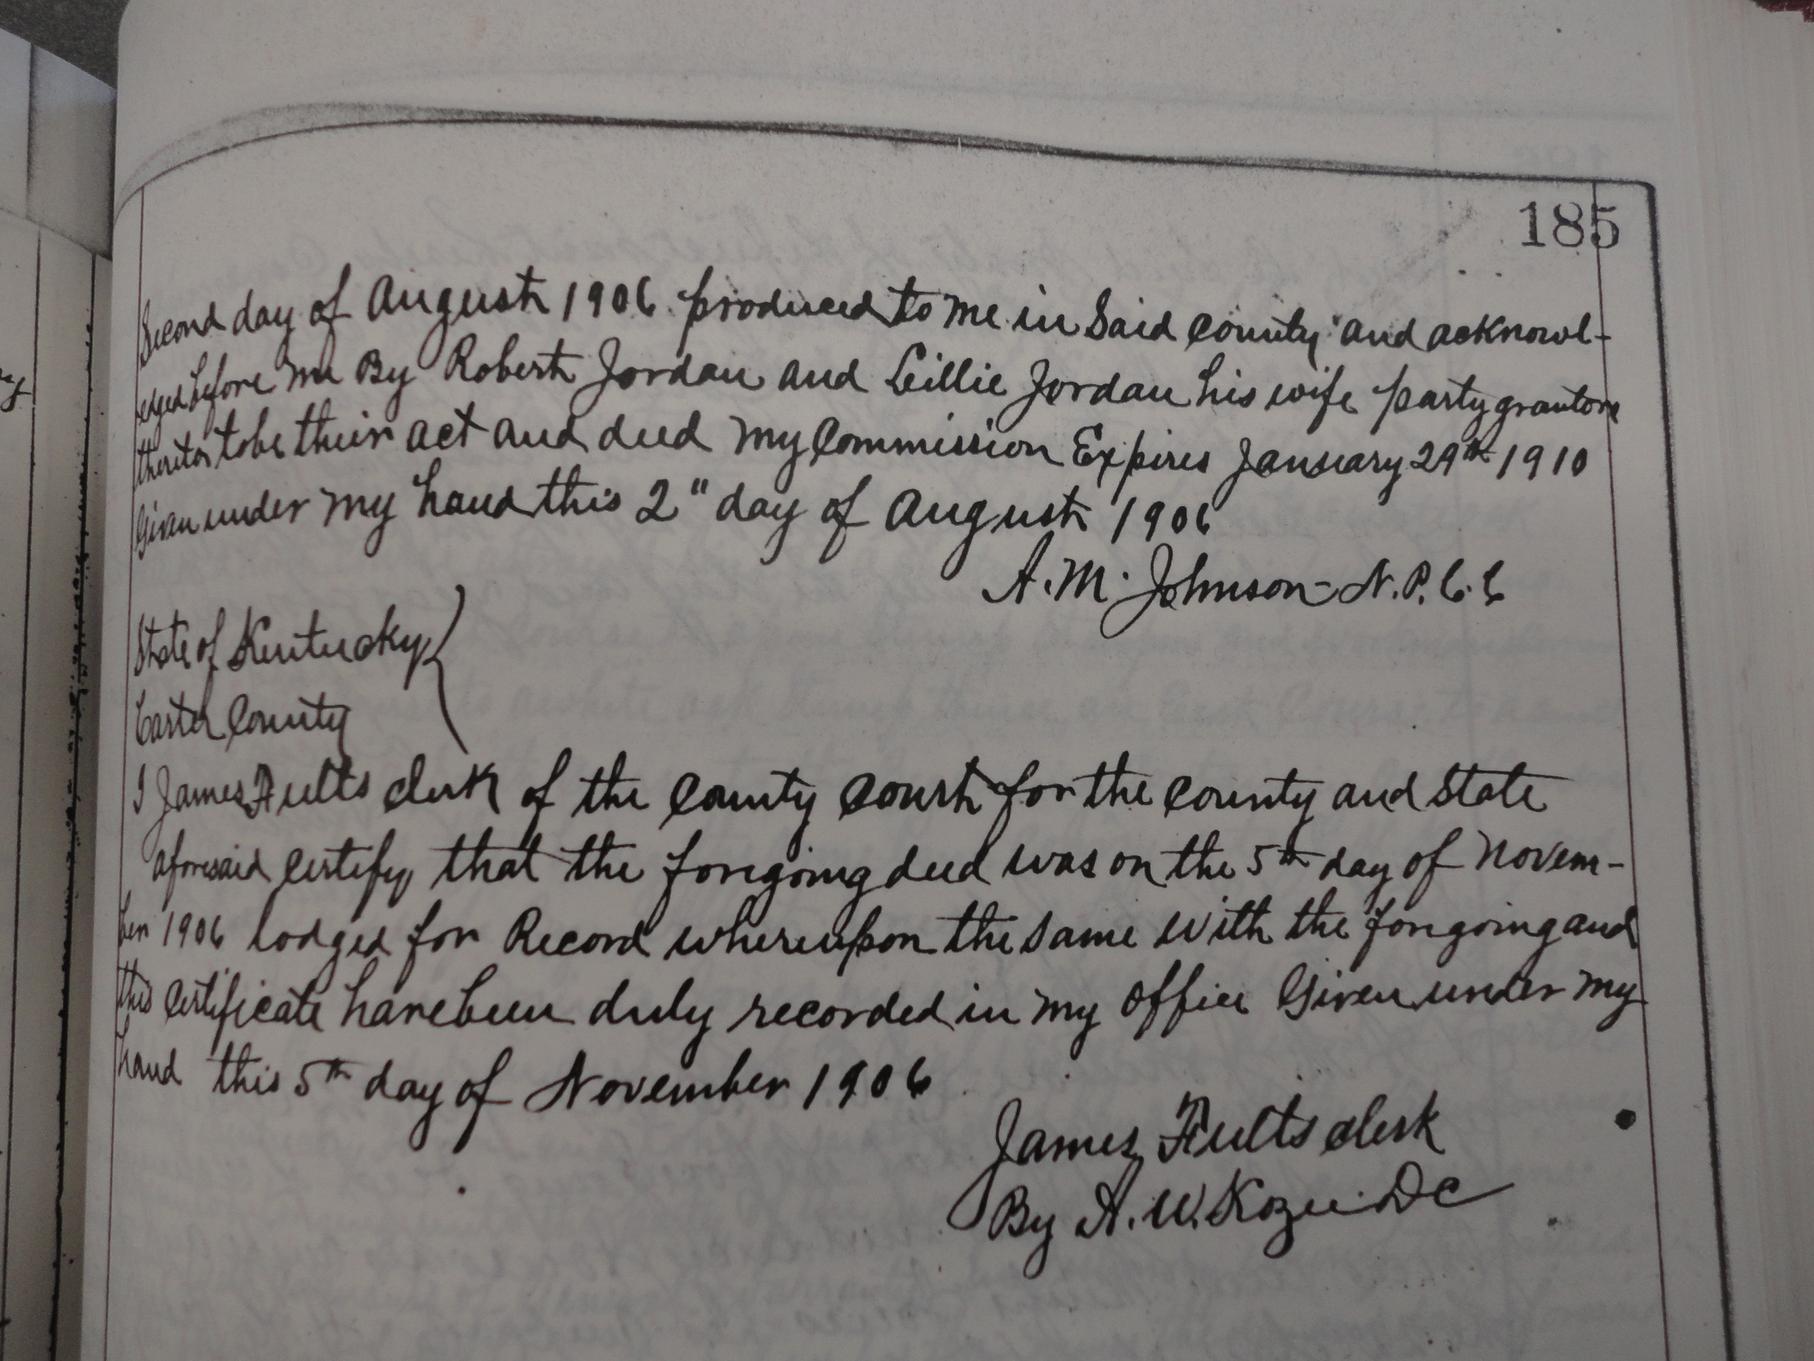 185
Second day of August 1906 produced to me in Said County and acknowl-
edged before me By Robert Jordan and Lillie Jordan his wife party grantors
thereto to be their act and deed my Commission Expires January 29th 1910
Given under my hand this 2" day of August 1906
A. M. Johnson - N. P. C. C
State of Kentucky
Carter County
I James Fults clerk of the County Court for the County and State
aforesaid certify that the foregoing deed was on the 5th day of Novem-
ber 1906 lodged for Record whereupon the same with the foregoing and
this certificate have been duly recorded in my office Given under my
hand this 5th day of November 1906
James Fults clerk
By A. W. Kozee DC